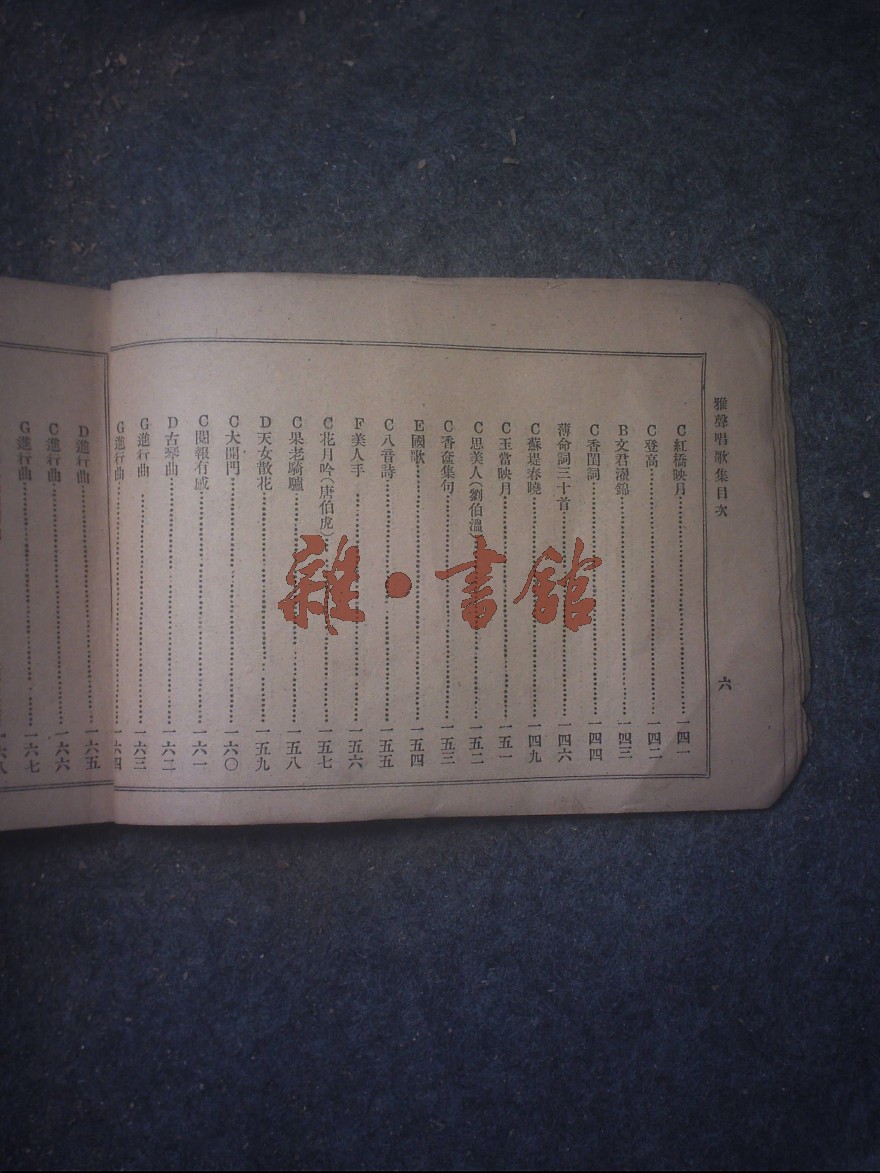 雅聲唱歌集目次
六
C紅橋映月…一四一
C登高…一四二
B文君濯錦…一四三
C香閨詞…一四四
薄命詞三十首…一四六
C蘇堤春曉…一四九
C玉當映月…一五一
C思美人(劉伯溫)…一五二
C香奩集句…一五三
E國歌…一五四
C八音詩…一五五
F美人手…一五六
C花月吟(唐伯虎)…一五七
C果老騎驢…一五八
D天女散花…一五九
C大開門…一六〇
C閱報有感…一六一
D古琴曲…一六二
G進行曲…一六三
G進行曲…一六四
D進行曲…一六五
C進行曲…一六六
G進行曲…一六七
一六八
雜·書館